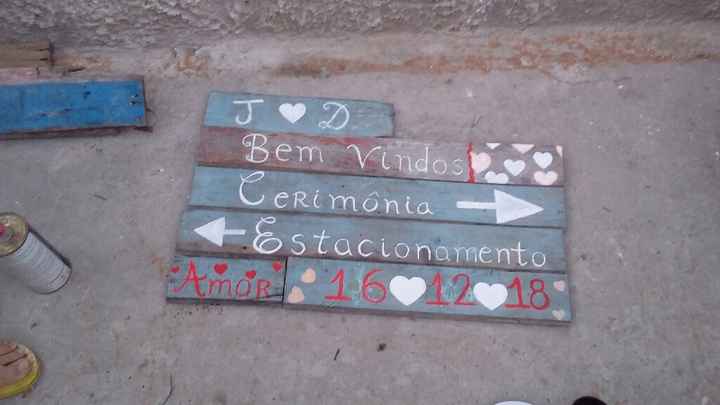 J ♥ D
Bem Vindos
Cerimônia
Estacionamento
Amor 16 ♥ 12 ♥ 18